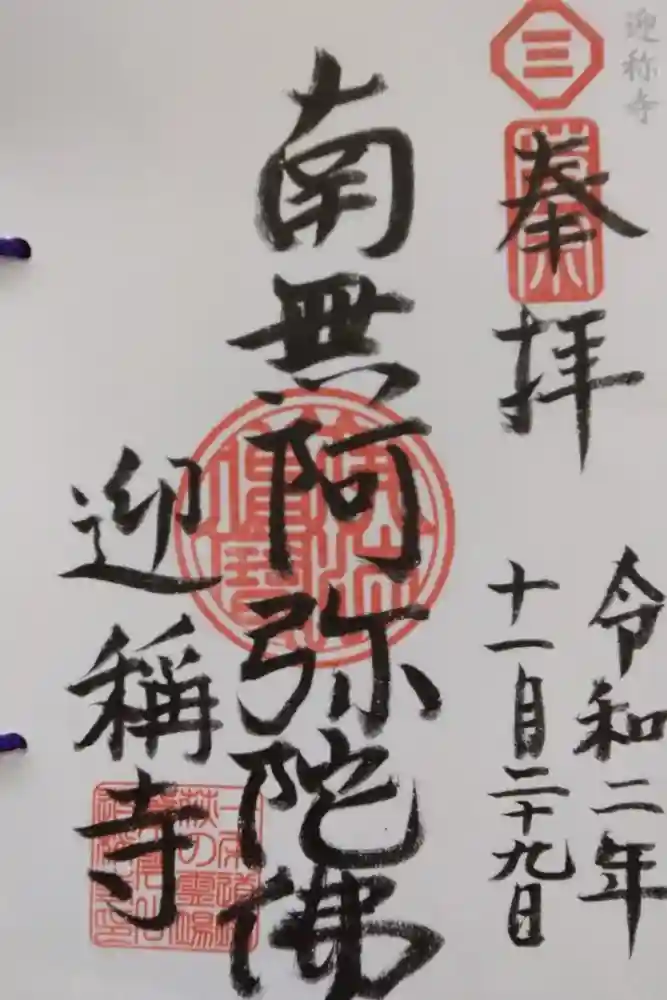 迎称寺
奉拝
令和二年
十一月二十九日
南無阿弥陀佛
迎稱寺
三
萩の霊場